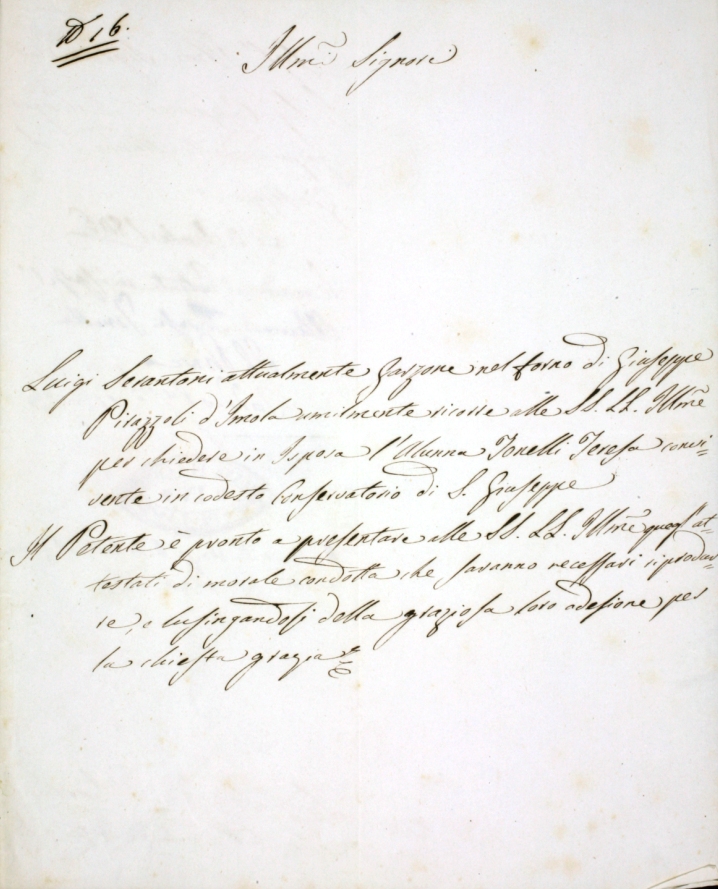 N 16.
Illmi Signori
Luigi Serantoni attualmente Garzone nel forno di Giuseppe
Pirazzoli d'Imola umilmente ricorre alle SS. LL. Illme
per chiedere in Isposa l'Alunna Tonelli Teresa convi-
vente in codesto Conservatorio di S. Giuseppe
Il Petente è pronto a presentare alle SS. LL. Illme quegl'at-
testati di morale condotta che saranno necessari riprodur-
re, e lusingandosi della graziosa loro adesione per
la chiesta grazia